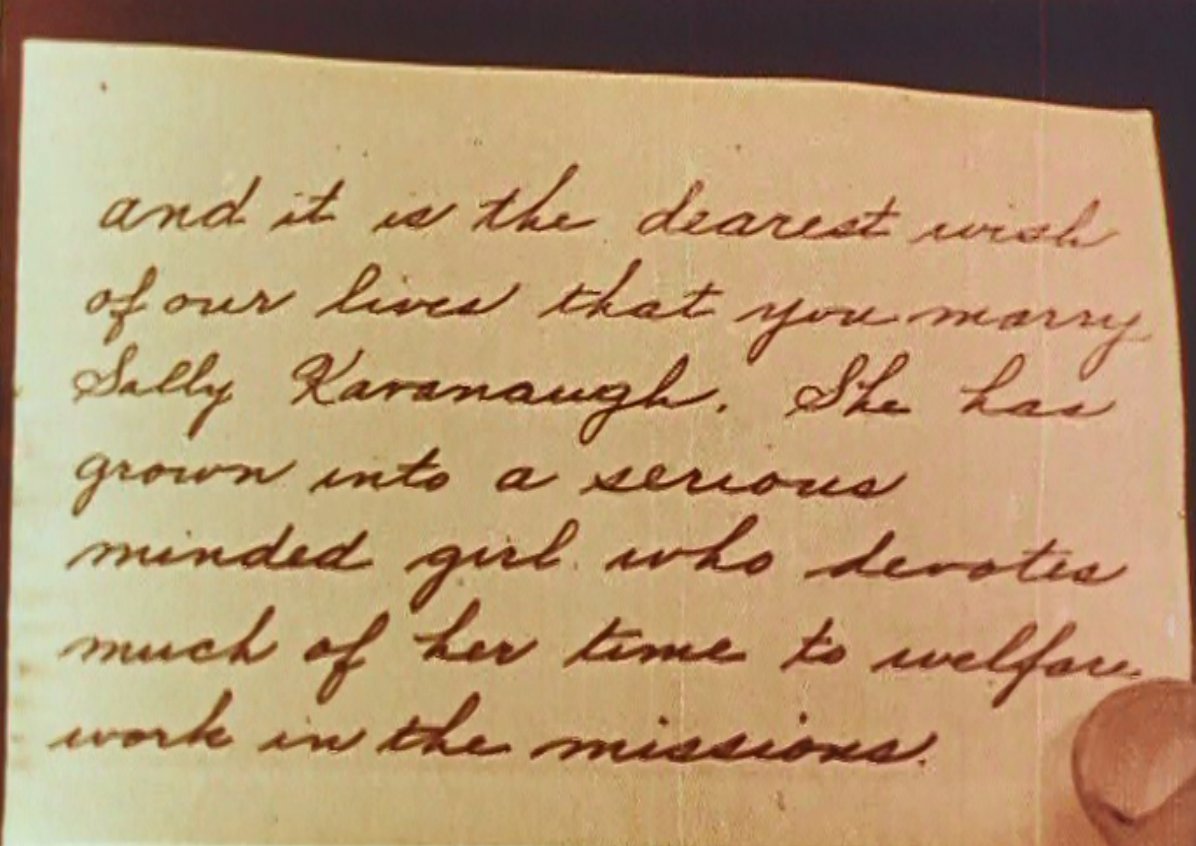 and it is the dearest wish
of our lives that you marry
Sally Kavanaugh. She has
grown into a serious
minded girl who devotes
much of her time to welfare
work in the missions.